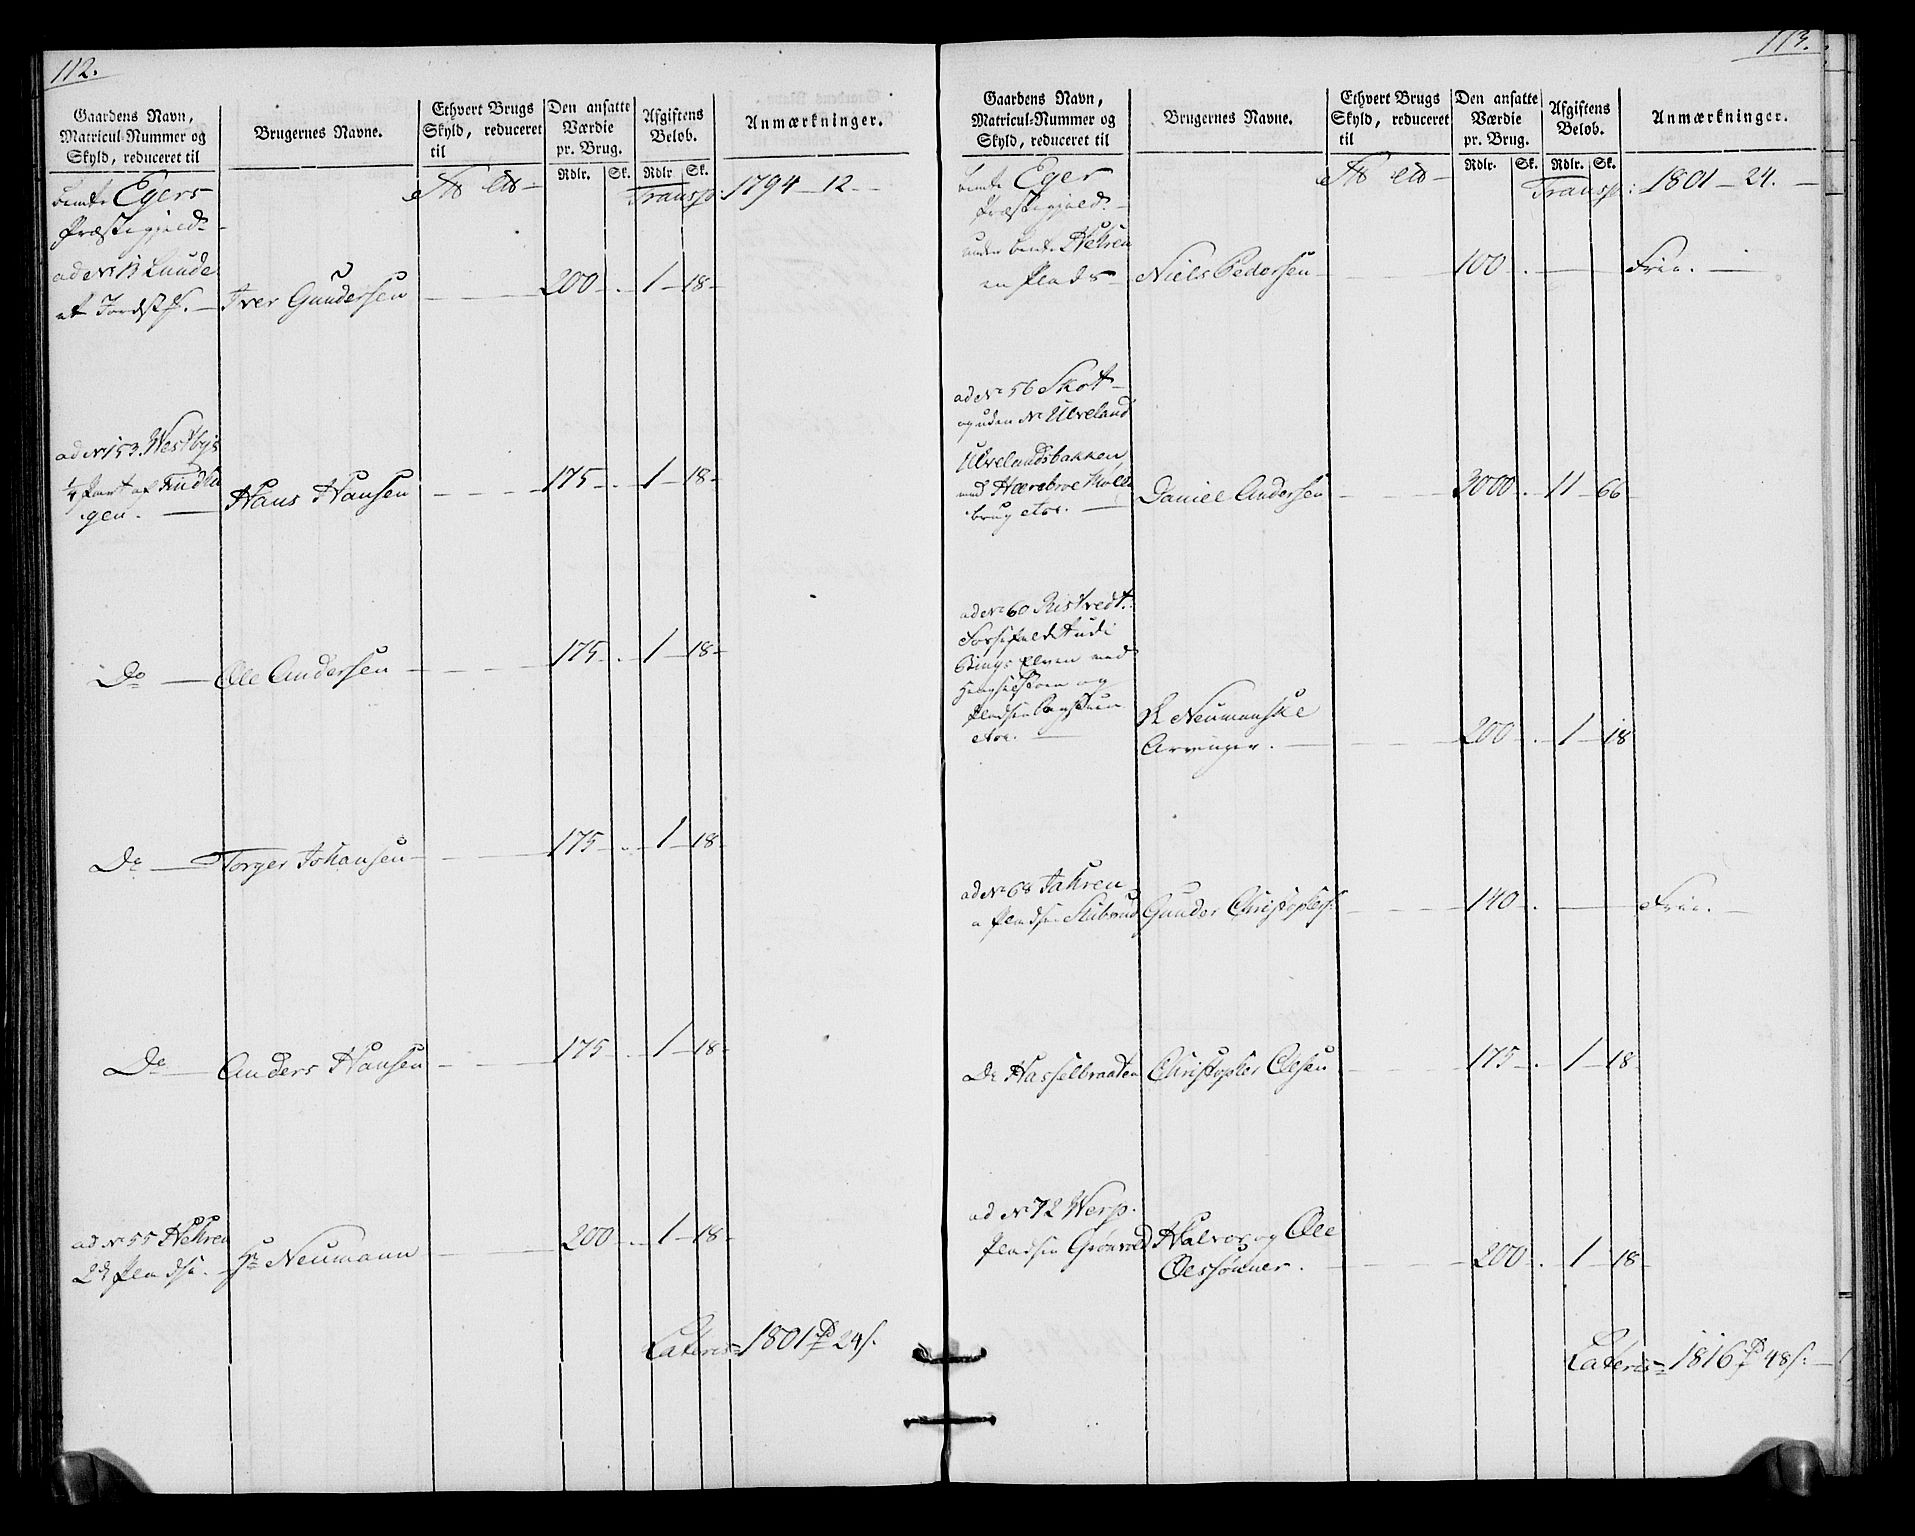 112.
Gaardens Navn,
Matricul-Nummer og
Skyld, reduceret til
Brugernes Navne.
Ethvert Brugs
Skyld, reduceret
til
Den ansatte
Værdie
pr. Brug.
Rdlr. Sk.
Afgiftens
Beløb.
Rdlr. Sk.
Anmærkninger.
bemte Egers
Præstegjeld
Transp. 1794 - 12 -
ad No 13 Lunde
et Jordst. Iver Gundersen 200 - 1 - 18 -
ad No 153 Westbye
1/4 Part af
gen. Hans Hansen 175 - 1 - 18 -
Do Ole Andersen 175 - 1 - 18 -
Do Torger Johansen 175 - 1 - 18 -
Do Anders Hansen 175 - 1 - 18 -
ad No 55 Hehren
2de Pladse. Hr Neumann 200 - 1 - 18 -
Lateris 1801 24 s.
113.
Gaardens Navn,
Matricul-Nummer og
Skyld, reduceret til
Brugernes Navne.
Ethvert Brugs
Skyld, reduceret
til
Den ansatte
Værdie
pr. Brug.
Rdlr. Sk.
Afgiftens
Beløb.
Rdlr. Sk.
Anmærkninger.
bemte Eger
Præstegjeld.
Transp: 1801 - 24. -
under bemte Hehren
en Plads Niels Pedersen 100 - Frie.
ad No 56 Skot
og uden No Ulveland
Ulvelandsbakken
med Hærebroe Mølle
brug etc. Daniel Andersen 3000 - 11 - 66
ad No 60 Ristvedt
Bings Elven med
og
Pladsen
etc.
Neumanske
Arvinger. 200 - 1 - 18
ad No 68 Jahren
Pladsen Stibrud Gunder Christophers: 140 - Frie.
Do Hasselbraaten Christopher Olsen 175 - 1 - 18
ad No 72 Werp.
Pladsen Grønvold Halvor og Ole
Olssønner. 200 - 1 - 18
Lateris 1816 48 s.